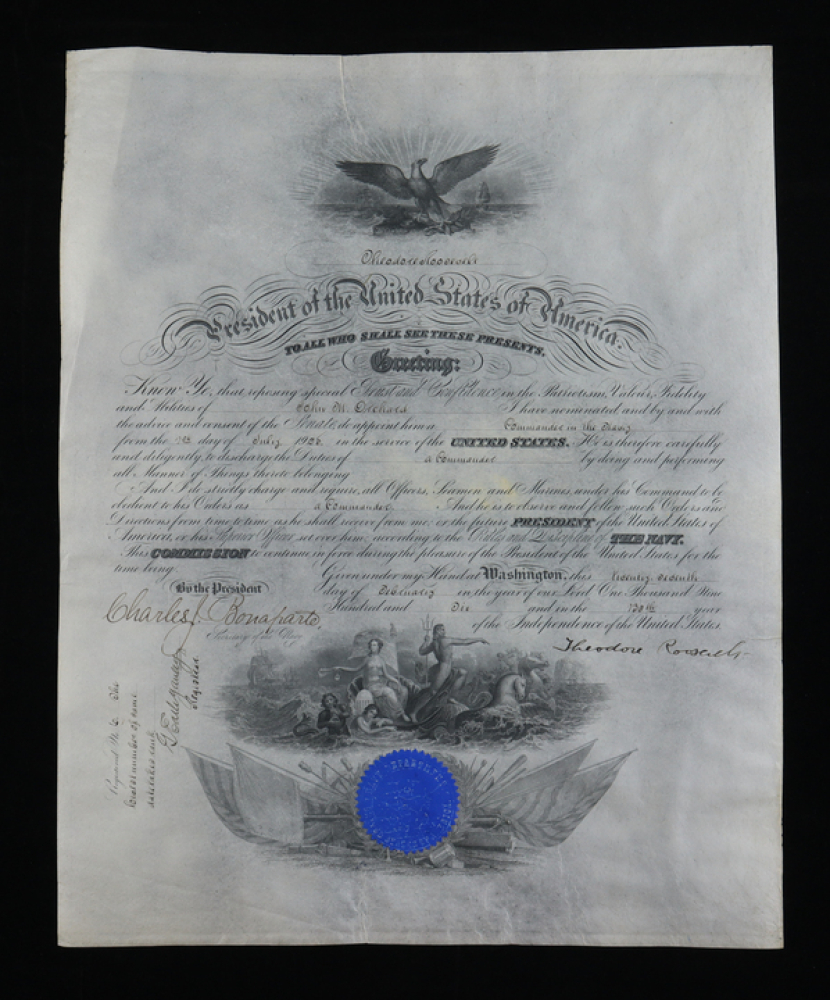 Theodore Roosevelt
President of the United States of America.
TO ALL WHO SHALL SEE THESE PRESENTS,
Greeting:
Know Ye, that reposing special Trust and Confidence in the Patriotism, Valour, Fidelity
and Abilities of John M. Orchard I have nominated and by and with
the advice and consent of the Senate do appoint him a Commander in the Navy
from the day of July 190 in the service of the UNITED STATES. He is therefore carefully
and diligently to discharge the Duties of a Commander by doing and performing
all Manner of Things thereto belonging
And I do strictly charge and require all Officers, Seamen and Marines under his Command to be
obedient to his Orders as a Commander And he is to observe and follow such Orders and
Directions from time to time as he shall receive from me, or the future PRESIDENT of the United States of
America, or his Superior Officer set over him, according to the Rules and Discipline of THE NAVY.
This COMMISSION to continue in force during the pleasure of the President of the United States for the
time being.
By the President
Given under my Hand at Washington, this twenty seventh
day of February in the year of our Lord One Thousand Nine
Hundred and Six and in the 130th year
of the Independence of the United States.
Charles J. Bonaparte,
Secretary of the Navy
Theodore Roosevelt
Register